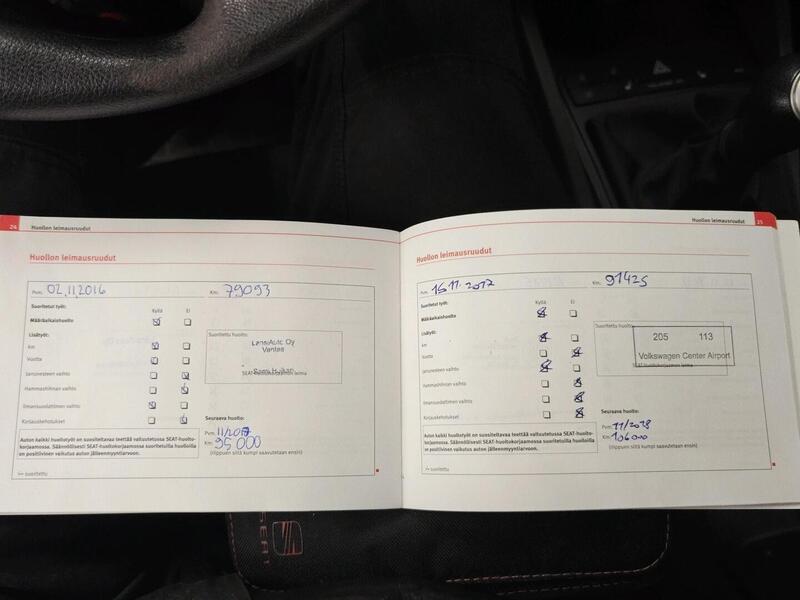 24 Huollon leimausruudut
Huollon leimausruudut
Pvm. 02.11.2016 Km. 79093
Suoritetut työt: Kyllä Ei
Määräaikaishuolto
Lisätyöt:
km
Vuotta
Jarrunesteen vaihto
Hammashihnan vaihto
Ilmansuodattimen vaihto
Korjauskehotukset
Suoritettu huolto:
LänsiAuto Oy
Vantaa
SEAT-huoltokorjaamon leima
Seuraava huolto:
Pvm. 11/2017
Km. 95000
(riippuen siitä kumpi saavutetaan ensin)
Auton kaikki huoltotyöt on suositeltavaa teettää valtuutetussa SEAT-huolto-
korjaamossa. Säännöllisesti SEAT-huoltokorjaamossa suoritetuilla huolloilla
on positiivinen vaikutus auton jälleenmyyntiarvoon.
= suoritettu
Huollon leimausruudut 25
Huollon leimausruudut
Pvm. 15.11.2017 Km. 91425
Suoritetut työt: Kyllä Ei
Määräaikaishuolto
Lisätyöt:
km
Vuotta
Jarrunesteen vaihto
Hammashihnan vaihto
Ilmansuodattimen vaihto
Korjauskehotukset
Suoritettu huolto:
205 113
Volkswagen Center Airport
SEAT-huoltokorjaamon leima
Seuraava huolto:
Pvm. 11/2018
Km. 106000
(riippuen siitä kumpi saavutetaan ensin)
Auton kaikki huoltotyöt on suositeltavaa teettää valtuutetussa SEAT-huolto-
korjaamossa. Säännöllisesti SEAT-huoltokorjaamossa suoritetuilla huolloilla
on positiivinen vaikutus auton jälleenmyyntiarvoon.
= suoritettu
SEAT